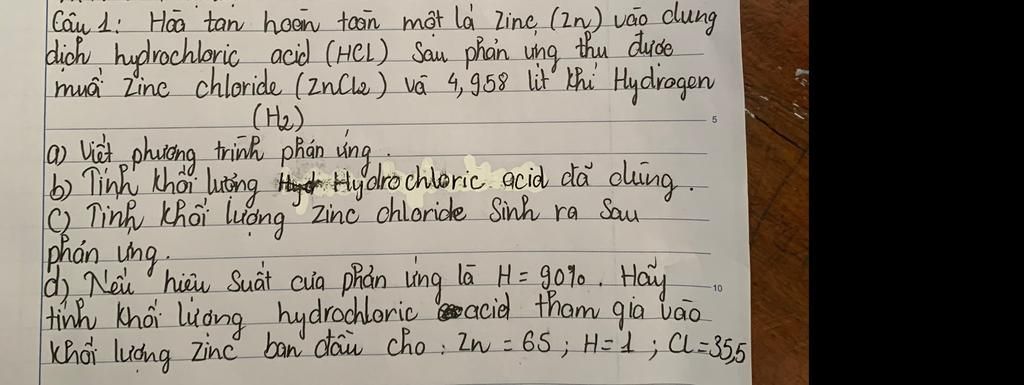 Câu 1: Hoà tan hoàn toàn một lá Zinc (Zn) vào dung
dịch hydrochloric acid (HCL) Sau phản ứng thu được
muối Zinc chloride (ZnCl2) và 4,958 lít khí Hydrogen
(H2)
5
a) Viết phương trình phản ứng.
b) Tính khối lượng Hydrochloric acid đã dùng.
c) Tính khối lượng Zinc chloride Sinh ra Sau
phản ứng.
d) Nếu hiệu Suất của phản ứng là H = 90%. Hãy
10
tính khối lượng hydrochloric acid tham gia vào
khối lượng Zinc ban đầu cho: Zn = 65; H=1; CL=35,5